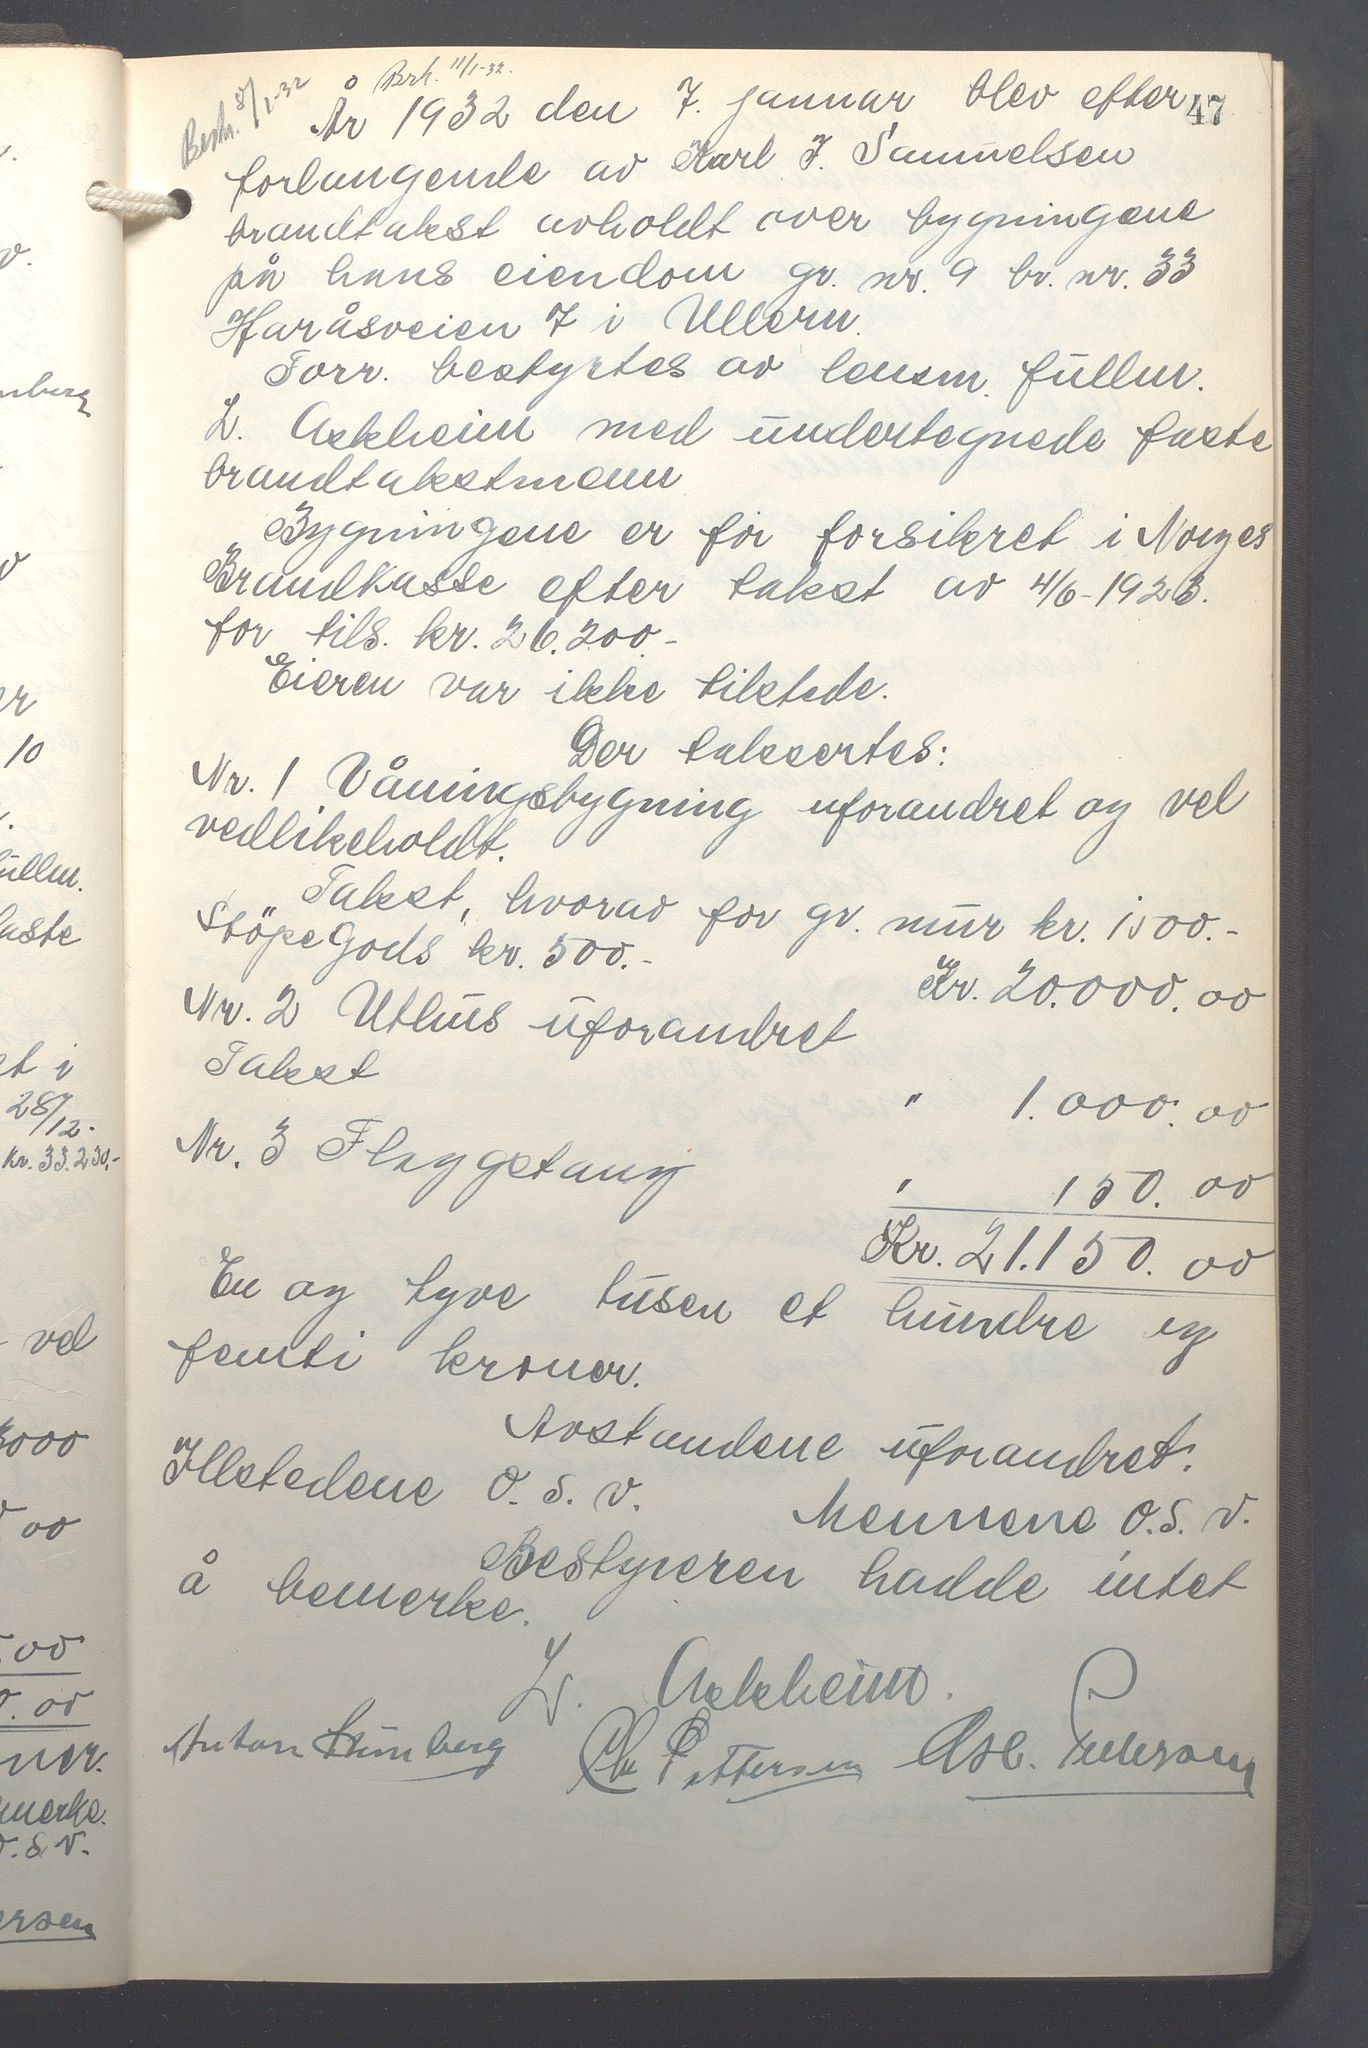 Beskr. 8/1-32
Brk. 11/1-32.
47
År 1932 den 7. januar blev efter
forlangende av Karl J. Samuelsen
brandtakst avholdt over bygningene
på hans eiendom gr. nr. 9 br. nr. 33
Haråsveien 7 i Ullern.
Forr. bestyrtes av lensm. fullm.
L. Askheim med undertegnede faste
brandtakstmenn
Bygningene er før forsikret i Norges
Brandkasse efter takst av 4/6-1923.
for tils. kr. 26.200.-
Eieren var ikke tilstede.
Der takseertes:
Nr. 1 Våningsbygning uforandret og vel
vedlikeholdt.
Takst, hvorav for gr. mur kr. 1500.-
Støpegods kr. 500.-
Kr. 20.000.00
Nr. 2 Uthus uforandret
Takst
" 1.000.00
Nr. 3 Flaggstang
" 150.00
Kr. 21.150.00
En og tyve tusen et hundre og
femti kroner.
Avstandene uforandret.
Ildstedene o.s.v.
Mennene o.s.v.
Bestyreren hadde intet
å bemerke.
L. Askheim.
Anton Lümberg Chr Pettersen Osc. Pedersen
v.
mberg
er
10
fullm.
faste
et i
28/12.
kr. 33.230,-
vel
3000
00
.00
0.00
ner.
merke.
o.s.v.
ersen